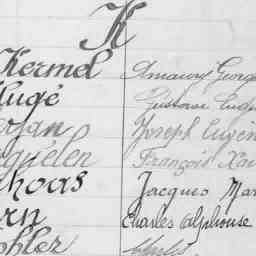 K
Kermel Amaury George
Hugé Gustave Eugè
rjan Joseph Eugèn
guélen François Xa
khoas Jacques Mar
ern Charles Alphouse
ohler Charles